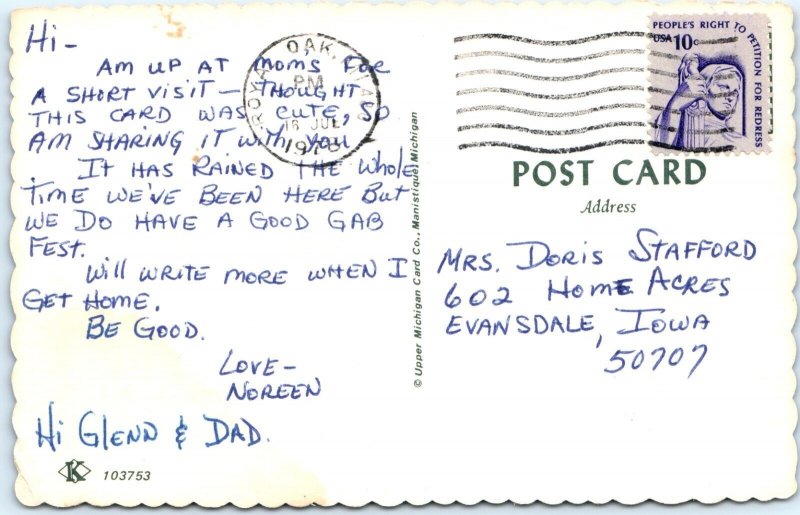 Hi-
AM UP AT MOMS FOR
A SHORT VISIT - THOUGHT
THIS CARD WAS CUTE, SO
AM SHARING IT WITH YOU
IT HAS RAINED THE WHOLE
TIME WE'VE BEEN HERE BUT
WE DO HAVE A GOOD GAB
FEST.
WILL WRITE MORE WHEN I
GET HOME.
BE GOOD.
LOVE-
NOREEN
Hi GLENN & DAD.
K 103753
ROYAL OAK,
PM
16 JUL
1978
© Upper Michigan Card Co., Manistique, Michigan
PEOPLE'S RIGHT TO PETITION FOR REDRESS
USA 10c
POST CARD
Address
MRS. DORIS STAFFORD
602 HOME ACRES
EVANSDALE, IOWA
50707